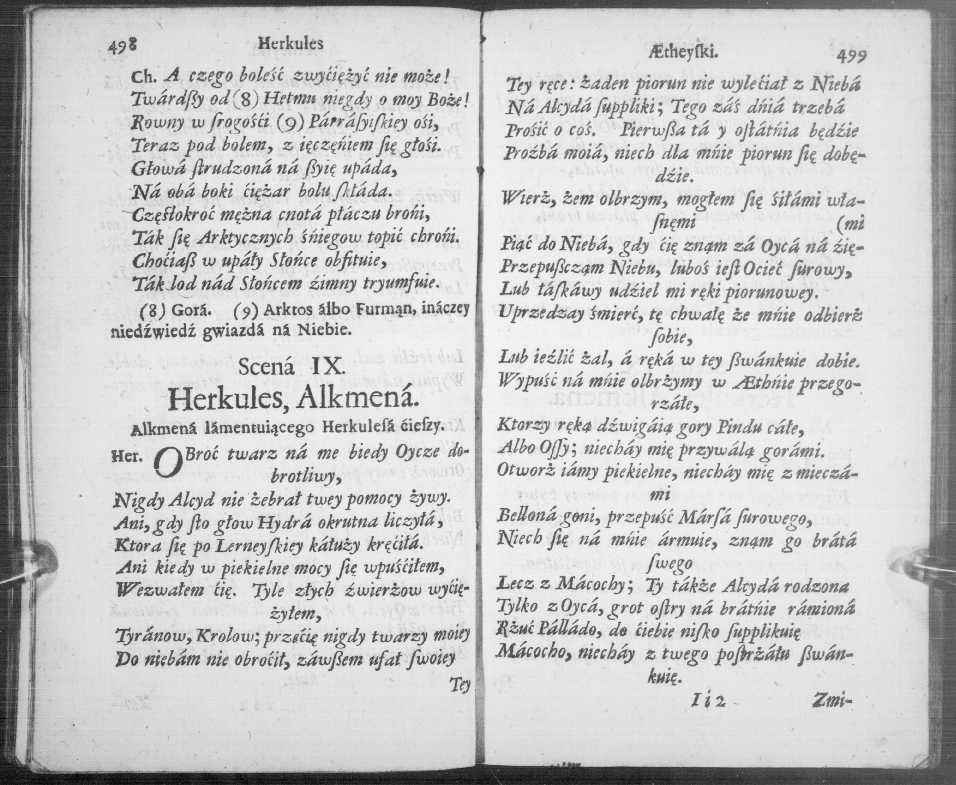 498 Herkules
Ch. A czego boleść zwyćiężyć nie może!
Twárdſßy od (8) Hetmu niegdy o moy Boże!
Rowny w ſrogośći (9) Párráſyiſkiey ośi,
Teraz pod bolem, z ięczęńiem ſię głośi.
Głowá ſtrudzoná ná ſßyię upáda,
Ná obá boki ćiężar bolu ſkłáda.
Częſtokroć mężna cnotá płáczu brońi,
Ták ſię Arktycznych śńiegow topić chrońi.
Choćiaß w upáły Słońce obfituie,
Ták lod nád Słońcem źimny tryumfuie.
(8) Gorá. (9) Arktos álbo Furmąn, ináczey
niedźwiedź gwiazdá ná Niebie.
Scená IX.
Herkules, Alkmená.
Alkmená lámentuiącego Herkuleſá ćieſzy.
Her. OBroć twarz ná me biedy Oycze do-
brotliwy,
Nigdy Alcyd nie żebrał twey pomocy żywy.
Ani, gdy ſto głow Hydrá okrutna liczyłá,
Ktora ſię po Lerneyſkiey káłuży kręćiłá.
Ani kiedy w piekielne mocy ſię wpuśćiłem,
Wezwałem ćię. Tyle złych źwierzow wyćię-
żyłem,
Tyránow, Krolow; przećię nigdy twarzy moiey
Do niebám nie obroćił, záwßem ufał ſwoiey
Tey
Ætheyſki. 499
Tey ręce: żaden piorun nie wylećiał z Niebá
Ná Alcydá ſuppliki; Tego záś dńiá trzebá
Prośić o coś. Pierwßa tá y oſtátńia będźie
Proźbá moiá, niech dla mńie piorun ſię dobę-
dźie.
Wierż, żem olbrzym, mogłem ſię śiłámi wła-
ſnęmi (mi
Piąć do Niebá, gdy ćię znąm zá Oycá ná źię-
Przepußcząm Niebu, luboś ieſt Oćieć ſurowy,
Lub łáſkáwy udźiel mi ręki piorunowey.
Uprzedzay śmierć, tę chwałę że mńie odbierż
ſobie,
Lub ieźlić żal, á ręká w tey ßwánkuie dobie.
Wypuść ná mńie olbrżymy w Æthńie przego-
rzáłe,
Ktorzy ręką dźwigáią gory Pindu cáłe,
Albo Oſſy; niecháy mię przywálą gorámi.
Otworż iámy piekielne, niecháy mię z mieczá-
mi
Belloná goni, przepuść Mársá ſurowego,
Niech ſię ná mńie ármuie, znąm go brátá
ſwego
Lecz z Mácochy; Ty tákże Alcydá rodzona
Tylko z Oycá, grot oſtry ná brátńie rámioná
Rżuć Pálládo, do ćiebie niſko ſupplikuię
Mácocho, niecháy z twego poſtrżáłu ßwán-
kuię.
I i 2 Zmi-